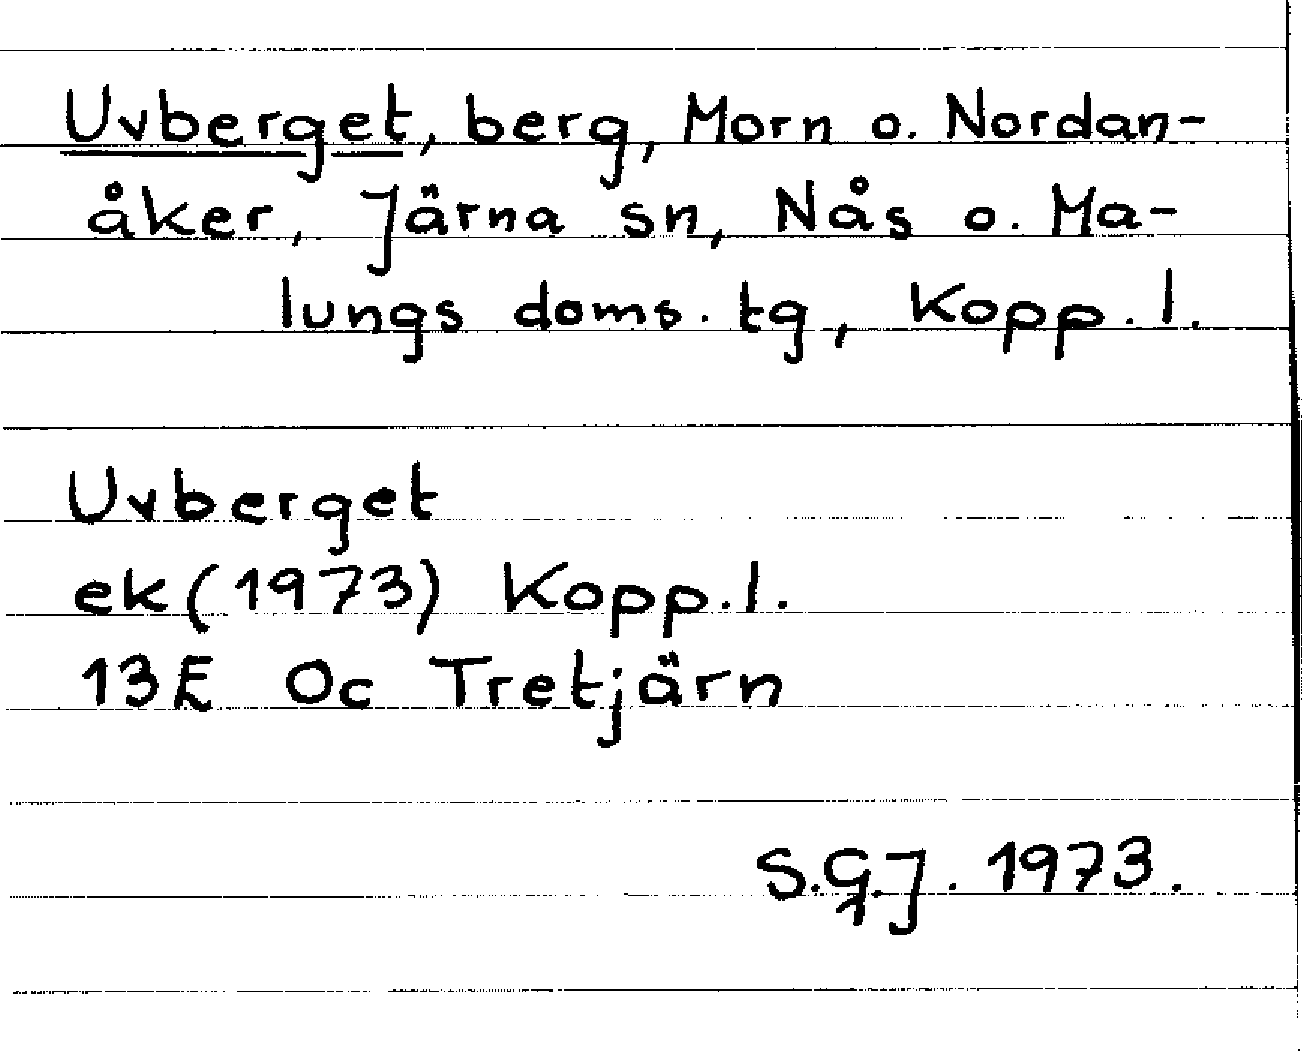 Uvberget, berg, Morn o. Nordan-
åker, Järna sn, Nås o. Ma-
lungs doms. tg, Kopp. l.
Uvberget
ek (1973) Kopp. l.
13E 0c Tretjärn
S.G.J. 1973.